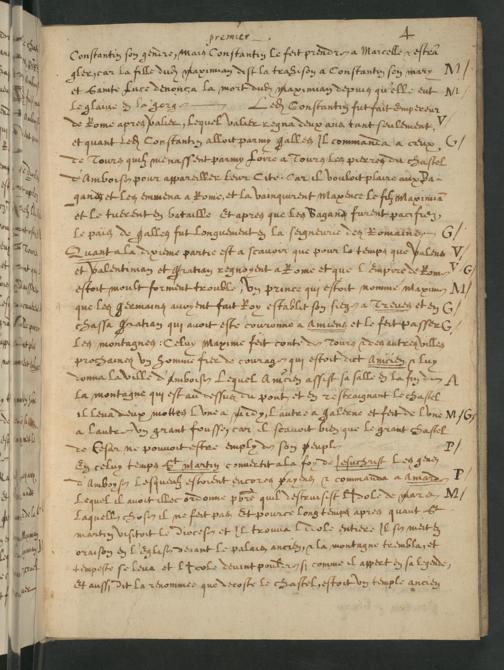 premier 4
Constantin son gendre, Mais Constantin le feit prendre a Marcelle & estran
gler, car la fille dud. Maximian dist la trahison a Constantin son mary M/
et Sainte Luce denonca la mort dud. Maximian depuis qu'elle eut M/
le glaive en la gorge ——— Led. Constantin fut fait empereur
de Rome apres Valier, Lequel valier regna deux ans tant seulement, V/
et quant Led. Constantin alloit parmy Galles Il commanda a ceux G/
de Tours qu'ilz menassent parmy Loire a Tours les pierres du chastel
d'Amboise pour appareiller leur Cité. Car il vouloit plaire aux Pa
gans, et les emmena a Rome, et la vainquirent Maxence le filz Maximian
et le tuerent en bataille Et apres que les Pagans furent pacifiez,
le pais de Galles fut longuement en la seigneurie des Romains. G/
Quant a la dixieme partie est a scavoir que pour le temps que Valent V/
et Valentinian et Gratian regnoyent a Rome et que l'Empire de Rom. V/G/
estoit moult forment trouble, Un prince qui estoit nomme Maxime M/
que les Germains avoyent fait Roy establit son siege a Treves et en G/
chassa Gratian qui avoit este couronne a Amiens et le feit passer G/
les montagnes: Celuy Maxime feit conte de Tours & des autres villes
prochaines un homme fier de courage qui estoit dict Ancien & luy
donna la ville d'Amboise Lequel Ancien assist sa salle en la fin de A
la montagne qui est au dessus du pont, et en restraignant le chastel
il leva deux mottes l'une a Ardoy, l'autre a Galerne et feit de l'une M/G/
a l'autre un grant fousse, car il scavoit bien que le grant chastel
de Cesar ne pouvoit estre emply de son peuple. P/
En celuy temps St. Martin convertit a la foy de Jesuchrist les gens
d'Amboise Lesquelz estoient encores payens & commanda a P/
Lequel il avoit illec ordonne pbre. qu'il destruisist l'Idole de Mars M/
laquelle chose il ne feit pas Et pource long temps apres quant St.
martin visitoit le diocese et Il trouva l'Idole entiere Il se meit en
oraison en l'Eglise devant le palais ancien, & la montagne trembla, et
tempeste se leva et l'Idole devint pouldre si comme il appert en sa legende,
et aussi dit la renommee que decoste le chastel, estoit un temple ancien